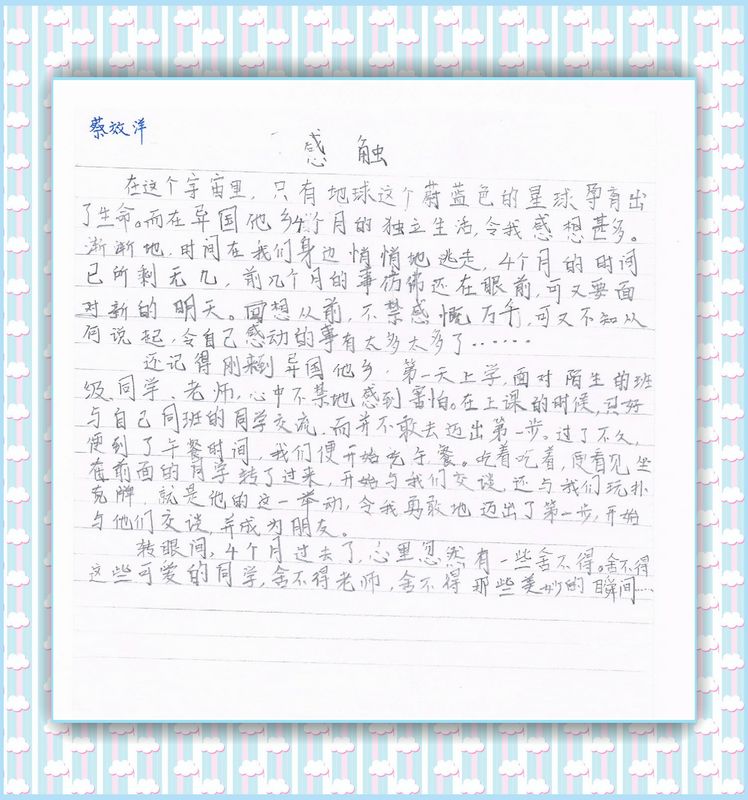 蔡效洋
感触
在这个宇宙里，只有地球这个蔚蓝色的星球孕育出
了生命。而在异国他乡4个月的独立生活，令我感想甚多。
渐渐地，时间在我们身边悄悄地逃走，4个月的时间
已所剩无几，前几个月的事仿佛还在眼前，可又要面
对新的明天。回想从前，不禁感慨万千，可又不知从
何说起，令自己感动的事有太多太多了……
还记得刚来到异国他乡，第一天上学，面对陌生的班
级、同学、老师，心中不禁地感到害怕。在上课的时候，只好
与自己同班的同学交流，而并不敢去迈出第一步。过了不久，
便到了午餐时间，我们便开始吃午餐。吃着吃着，便看见坐
在前面的同学转了过来，开始与我们交谈，还与我们玩扑
克牌，就是他的这一举动，令我勇敢地迈出了第一步，开始
与他们交谈，并成为朋友。
转眼间，4个月过去了，心里忽然有一些舍不得。舍不得
这些可爱的同学，舍不得老师，舍不得那些美妙的瞬间……